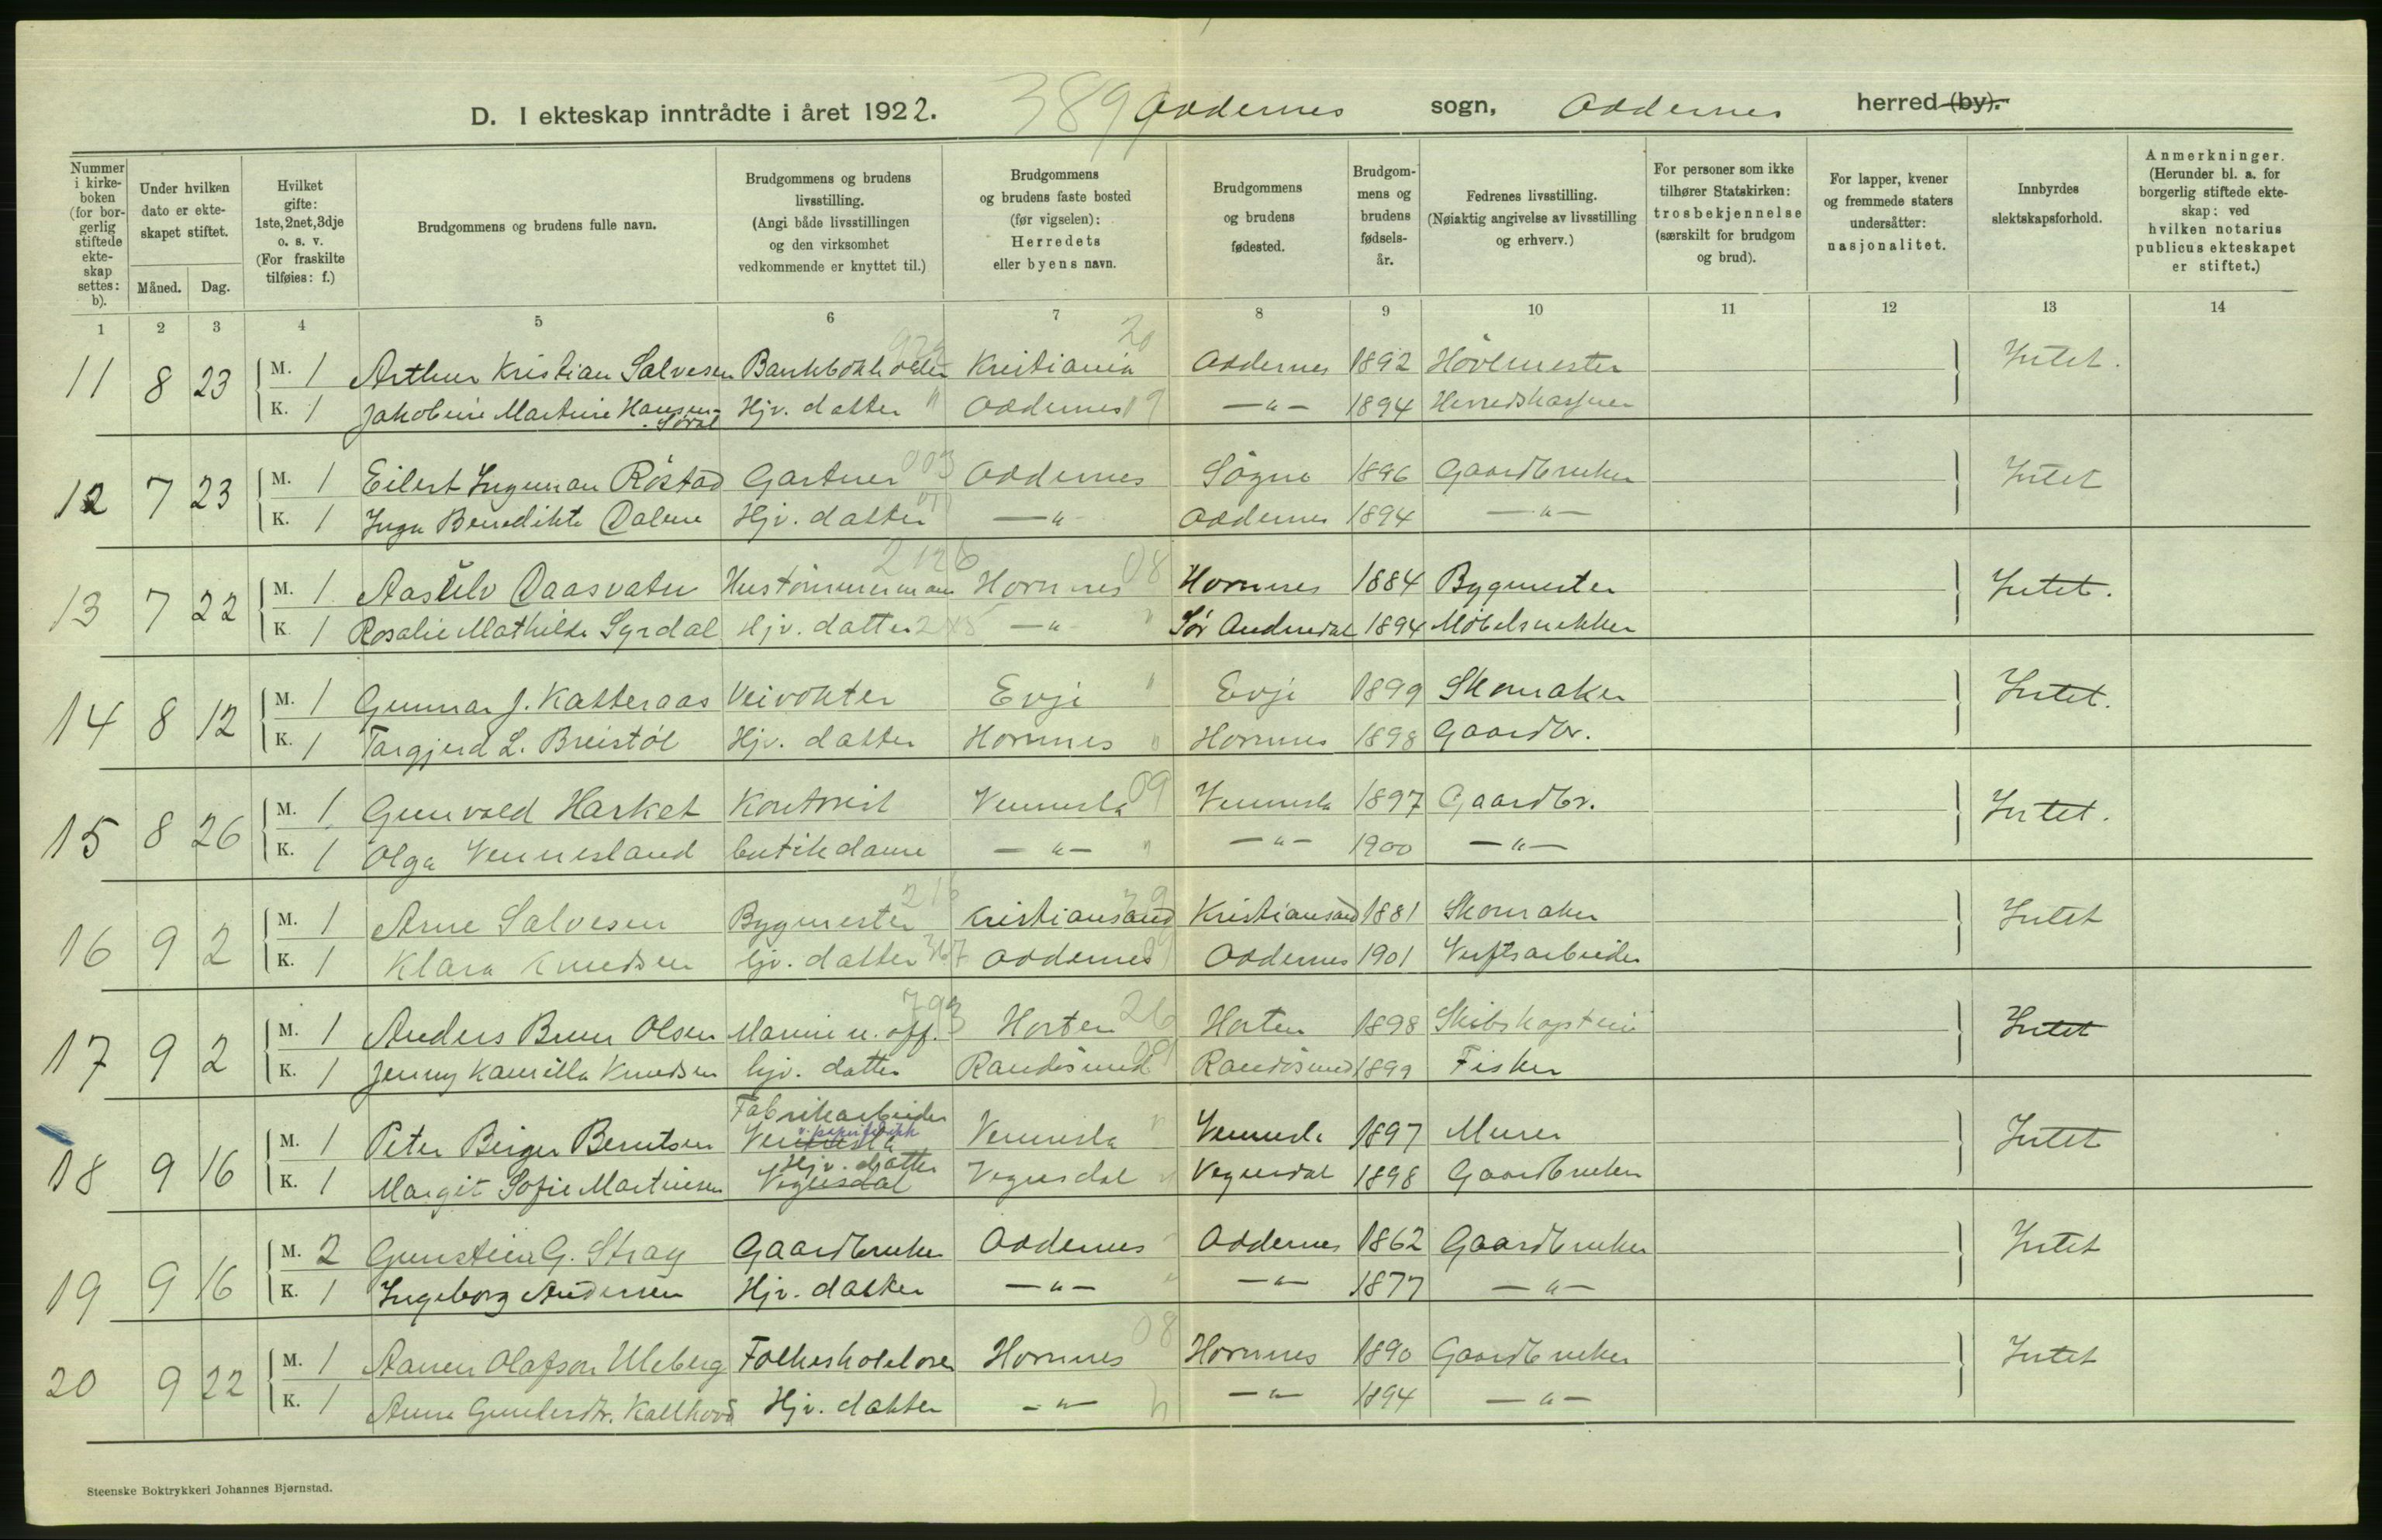 D. I ekteskap inntrådte i året 1922. 389 Oddernes sogn, Oddernes herred (by).
Nummer i kirkeboken (for borgerlig stiftede ekteskap settes: b).
Under hvilken dato er ekteskapet stiftet.
Måned. Dag.
Hvilket gifte: 1ste, 2net, 3dje o. s. v. (For fraskilte tilføies: f.)
Brudgommens og brudens fulle navn.
Brudgommens og brudens livsstilling. (Angi både livsstillingen og den virksomhet vedkommende er knyttet til.)
Brudgommens og brudens faste bosted (før vigselen): Herredets eller byens navn.
Brudgommens og brudens fødested.
Brudgommens og brudens fødselsår.
Fedrenes livsstilling. (Nøiaktig angivelse av livsstilling og erhverv.)
For personer som ikke tilhører Statskirken: trosbekjennelse (særskilt for brudgom og brud).
For lapper, kvener og fremmede staters undersåtter: nasjonalitet.
Innbyrdes slektskapsforhold.
Anmerkninger. (Herunder bl. a. for borgerlig stiftede ekteskap: ved hvilken notarius publicus ekteskapet er stiftet.)
1 2 3 4 5 6 7 8 9 10 11 12 13 14
11 8 23 M. 1 Arthur Kristian Salvesen Bankbokholder Kristiania 20 Oddernes 1892 Hövlmester Intet.
K. 1 Jakobine Martine Hansen-Sördal Hjv. datter Oddernes 09 —"— 1894 Herredskasserer
12 7 23 M. 1 Eilert Ingeman Röstad Gartner 003 Oddernes Sögne 1896 Gaardbruker Intet
K. 1 Inga Benedikte Dalene Hjv. datter —"— Oddernes 1894 —"—
13 7 22 M. 1 Aasulv Daasvatn Hustömmermann Hornnes 08 Hornnes 1884 Bygmester Intet.
K. 1 Rosalie Mathilde Syrdal Hjv. datter —"— Sör Audnedal 1894 Möbelsnekker
14 8 12 M. 1 Gunnar J. Katteraas Veivokter Evje Evje 1899 Skomaker Intet.
K. 1 Targjerd L. Breistöl Hjv. datter Hornnes Hornnes 1898 Gaardbr.
15 8 26 M. 1 Gunvald Harket Kontorist Vennesla 09 Vennesla 1897 Gaardbr. Intet.
K. 1 Olga Vennesland butikdame —"— —"— 1900 —"—
16 9 2 M. 1 Arne Salvesen Bygmester Kristiansand Kristiansand 1881 Skomaker Intet
K. 1 Klara Knudsen hjv. datter Oddernes Oddernes 1901 Verftsarbeider
17 9 2 M. 1 Anders Bruun Olsen Marine u. off. 793 Horten 26 Horten 1898 Skibskaptein Intet
K. 1 Jenny Kamilla Knudsen hjv. datter Randösund 09 Randösund 1899 Fisker
Fabrikarbeider
18 9 16 M. 1 Peter Birger Berntsen Vennesla v. papirfabrikk Vennesla Vennesla 1897 Murer Intet
Hjv. datter
K. 1 Margit Sofie Martinsen Vegusdal Vegusdal Vegusdal 1898 Gaardbruker
19 9 16 M. 2 Gunstein G. Stray Gaardbruker Oddernes Oddernes 1862 Gaardbruker Intet
K. 1 Ingeborg Andersen Hjv. datter —"— —"— 1877 —"—
20 9 22 M. 1 Aanen Olafson Uleberg Folkeskolelærer Hornnes 08 Hornnes 1890 Gaardbruker Intet
K. 1 Anna Gundersdtr. Kallhovd Hjv. datter —"— —"— 1894 —"—
Steenske Boktrykkeri Johannes Bjørnstad.